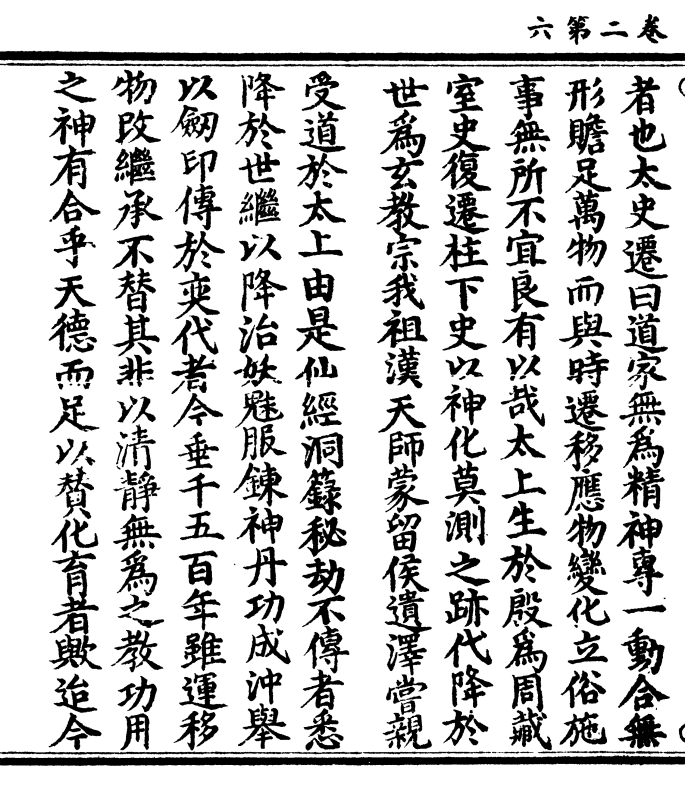 卷二第六
者也太史遷曰道家無爲精神專一動合無
形贍足萬物而與時遷移應物變化立俗施
事無所不宜良有以哉太上生於殷爲周藏
室史復遷柱下史以神化莫測之跡代降於
世爲玄教宗我祖漢天師蒙留侯遺澤嘗親
受道於太上由是仙經洞籙秘劫不傳者悉
降於世繼以降治妖魅服鍊神丹功成沖舉
以劒印傳於奕代者今垂千五百年雖運移
物改繼承不替其非以清靜無爲之教功用
之神有合乎天德而足以贊化育者歟迨今